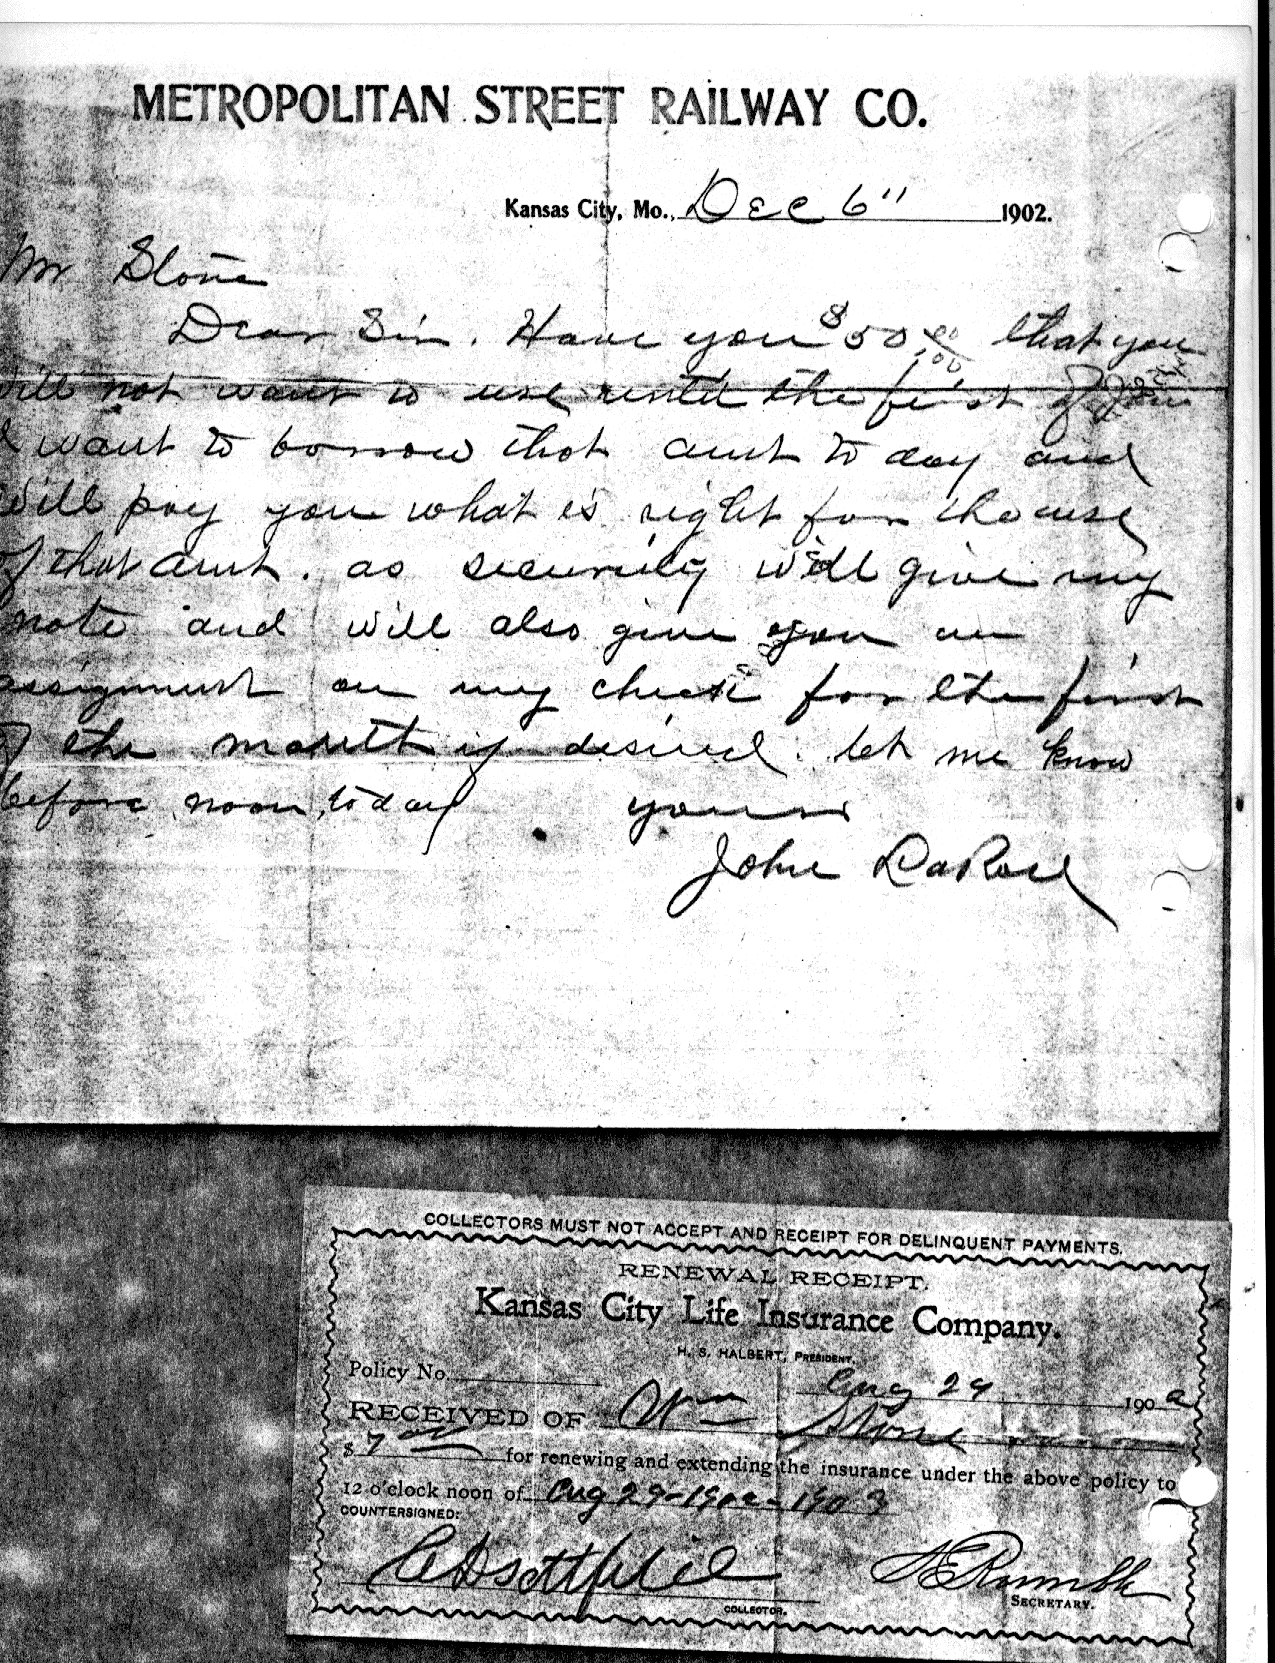 METROPOLITAN STREET RAILWAY CO.
Kansas City, Mo., Dec 6" 1902.
Mr Stone
Dear Sir. Have you $50 00/100 that you
will not want to use until the first of Jan
I want to borrow that amt to day and
will pay you what is right for the use
of that amt. as security will give my
note and will also give you an
assignment on my check for the first
of the month if desired. let me know
before noon, today yours
John LaRose
COLLECTORS MUST NOT ACCEPT AND RECEIPT FOR DELINQUENT PAYMENTS.
RENEWAL RECEIPT.
Kansas City Life Insurance Company.
H. S. HALBERT, PRESIDENT.
Policy No. Aug 29 1902
RECEIVED OF Wm Stone
$7 00 for renewing and extending the insurance under the above policy to
12 o'clock noon of Aug 29-1902-1903
COUNTERSIGNED:
COLLECTOR.
SECRETARY.